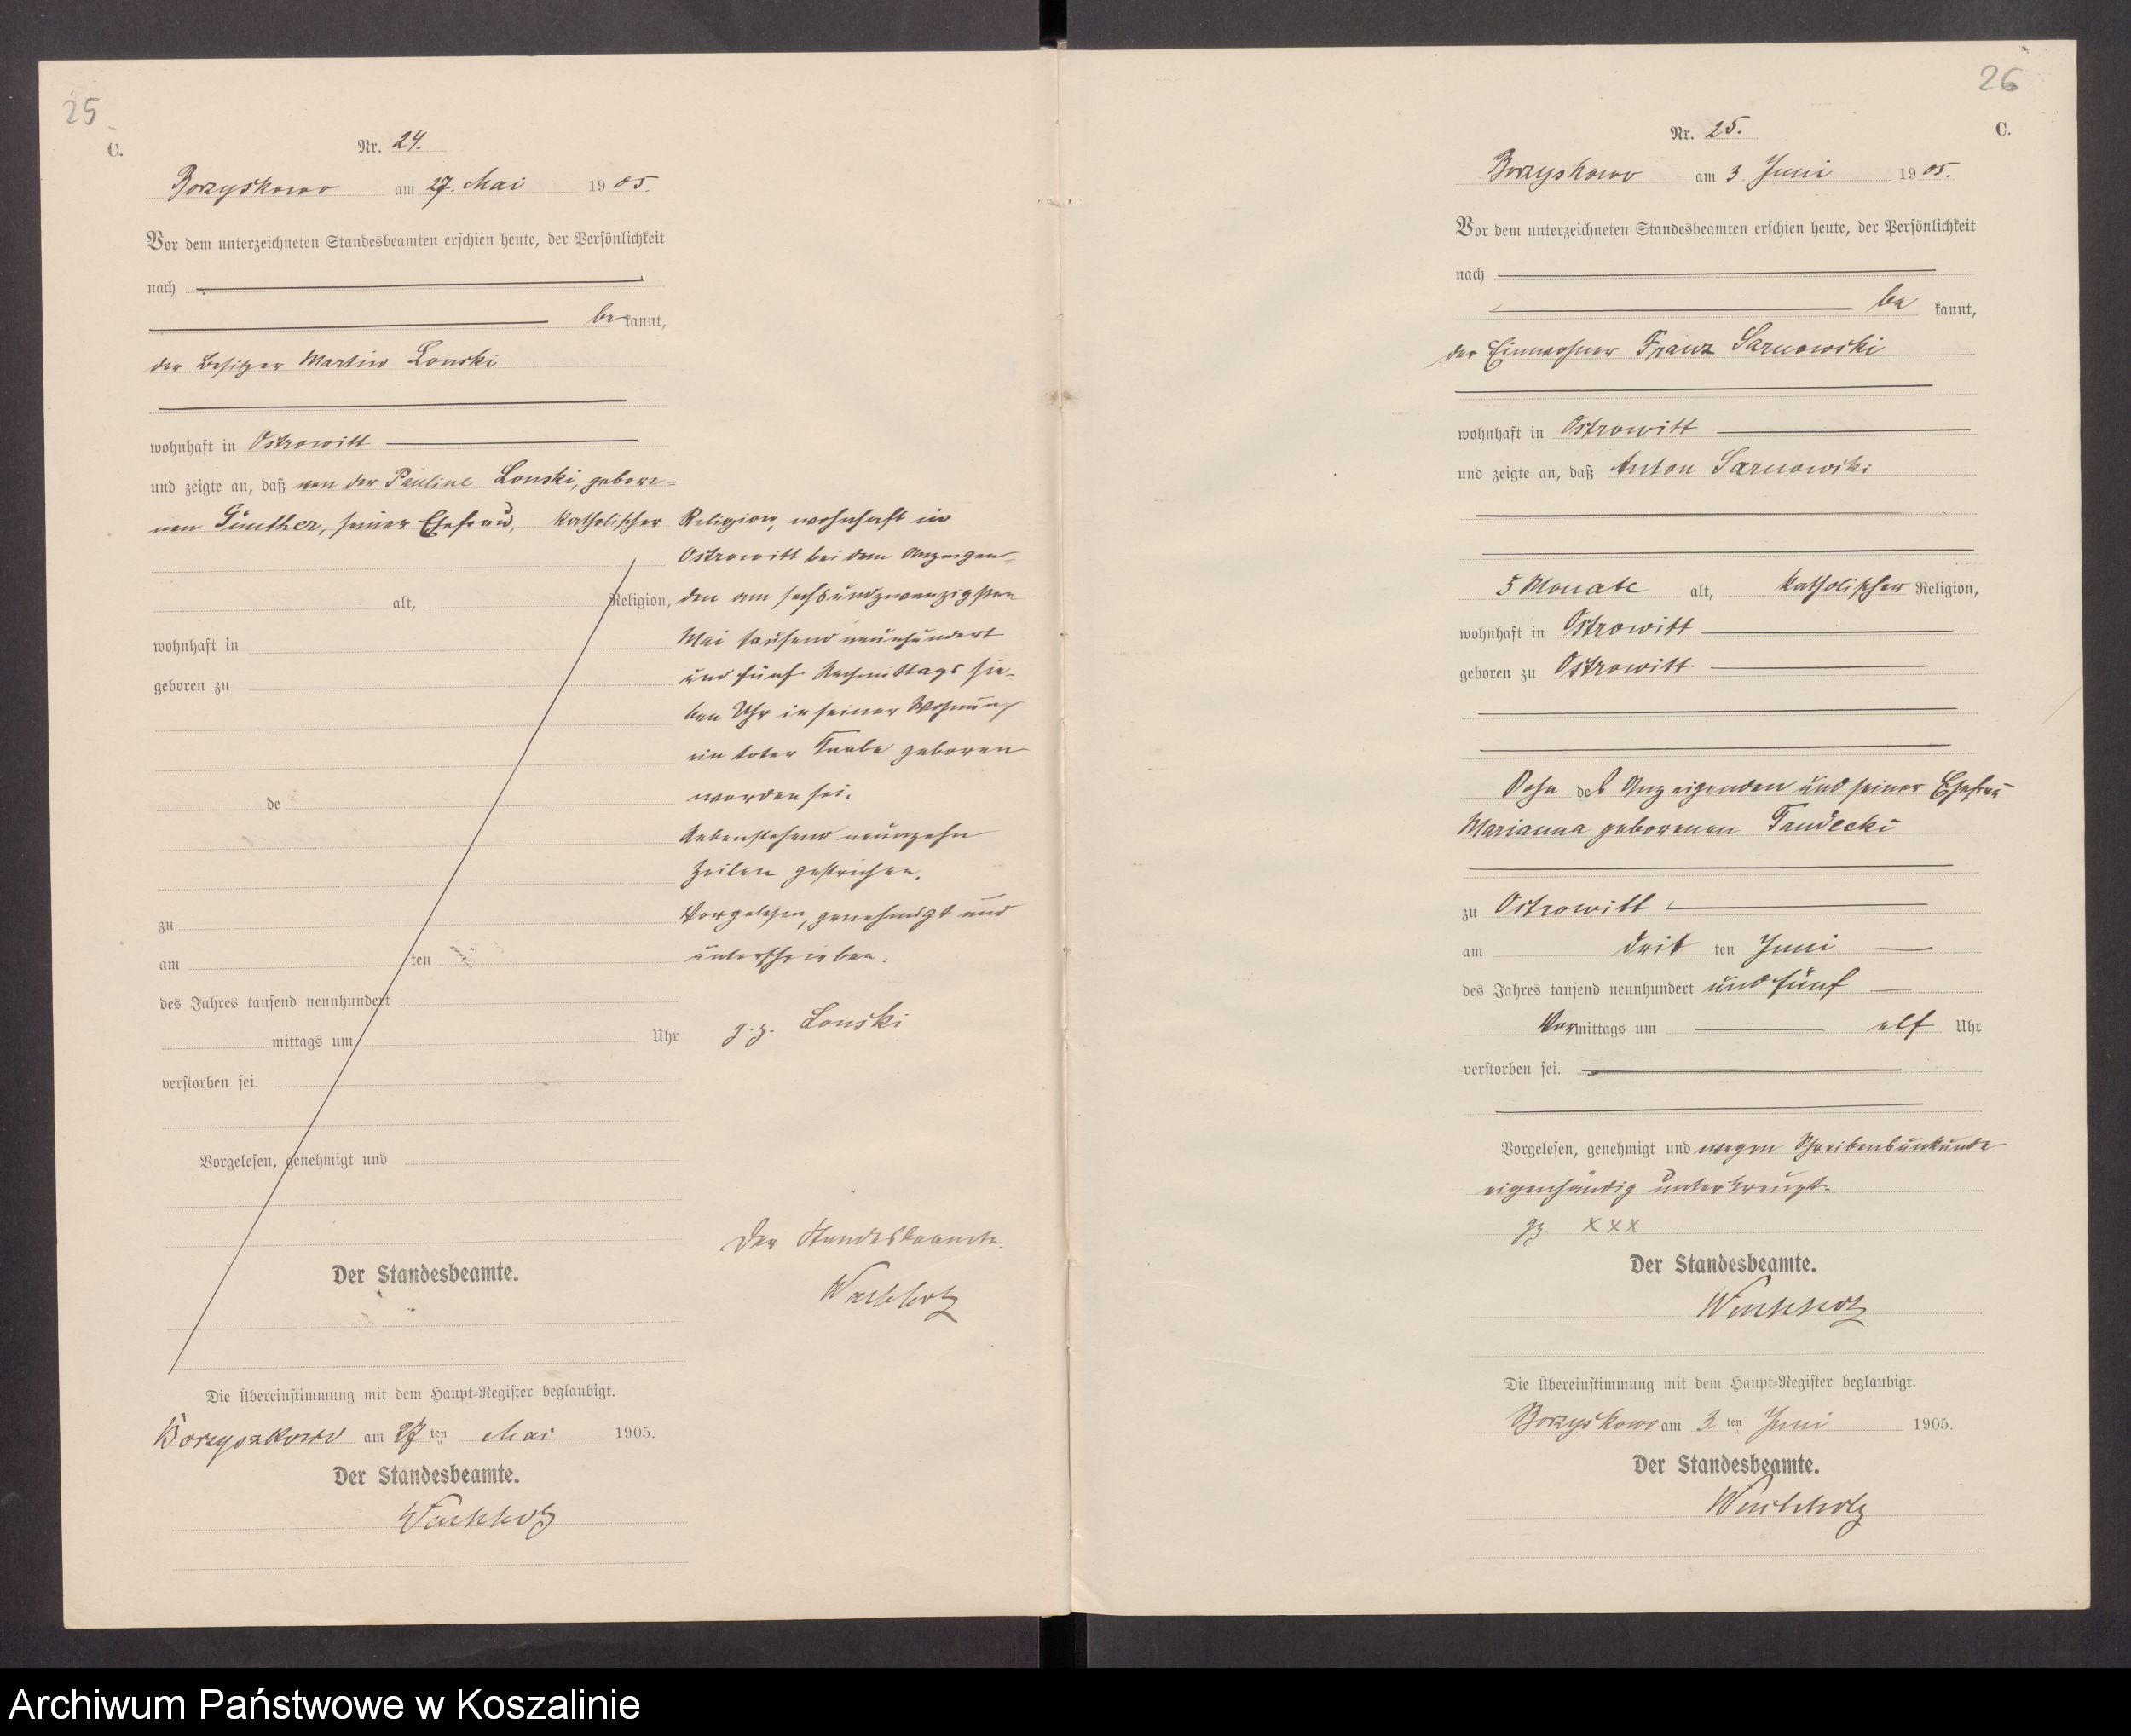 25
C.
Nr. 24.
Borzyskowo am 27. Mai 1905.
Vor dem unterzeichneten Standesbeamten erschien heute, der Persönlichkeit
nach
bekannt,
der Besitzer Martin Lonski
wohnhaft in Ostrowitt
und zeigte an, daß von der Pauline Lonski, gebore=
nen Günther, seiner Ehefrau, katholischer Religion, wohnhaft in
Ostrowitt bei dem Anzeigen=
alt, Religion, den am sechsundzwanzigsten
wohnhaft in Mai tausend neunhundert
geboren zu und fünf Nachmittags sie-
ben Uhr in seiner Wohnung
ein toter Knabe geboren
de worden sei.
Nebenstehend neunzehn
Zeilen gestrichen.
zu Vorgelesen, genehmigt und
am ten unterschrieben.
des Jahres tausend neunhundert
g.z. Lonski
mittags um Uhr
verstorben sei.
Vorgelesen, genehmigt und
Der Standesbeamte.
Wachholz
Der Standesbeamte.
Die Übereinstimmung mit dem Haupt-Register beglaubigt.
Borzyszkowo am 27ten Mai 1905.
Der Standesbeamte.
Wachholz
26
C.
Nr. 25.
Borzyskowo am 3. Juni 1905.
Vor dem unterzeichneten Standesbeamten erschien heute, der Persönlichkeit
nach
be kannt,
der Einwohner Franz Sarnowski
wohnhaft in Ostrowitt
und zeigte an, daß Anton Sarnowski
5 Monate alt, katholischer Religion,
wohnhaft in Ostrowitt
geboren zu Ostrowitt
Sohn des Anzeigenden und seiner Ehefrau
Marianna geborenen Tandecki
zu Ostrowitt
am drit ten Juni
des Jahres tausend neunhundert und fünf
Vormittags um elf Uhr
verstorben sei.
Vorgelesen, genehmigt und wegen Schreibensunkunde
eigenhändig unterkreuzt.
gz. xxx
Der Standesbeamte.
Wachholz
Die Übereinstimmung mit dem Haupt-Register beglaubigt.
Borzyskowo am 3ten Juni 1905.
Der Standesbeamte.
Wachholz
Archiwum Państwowe w Koszalinie